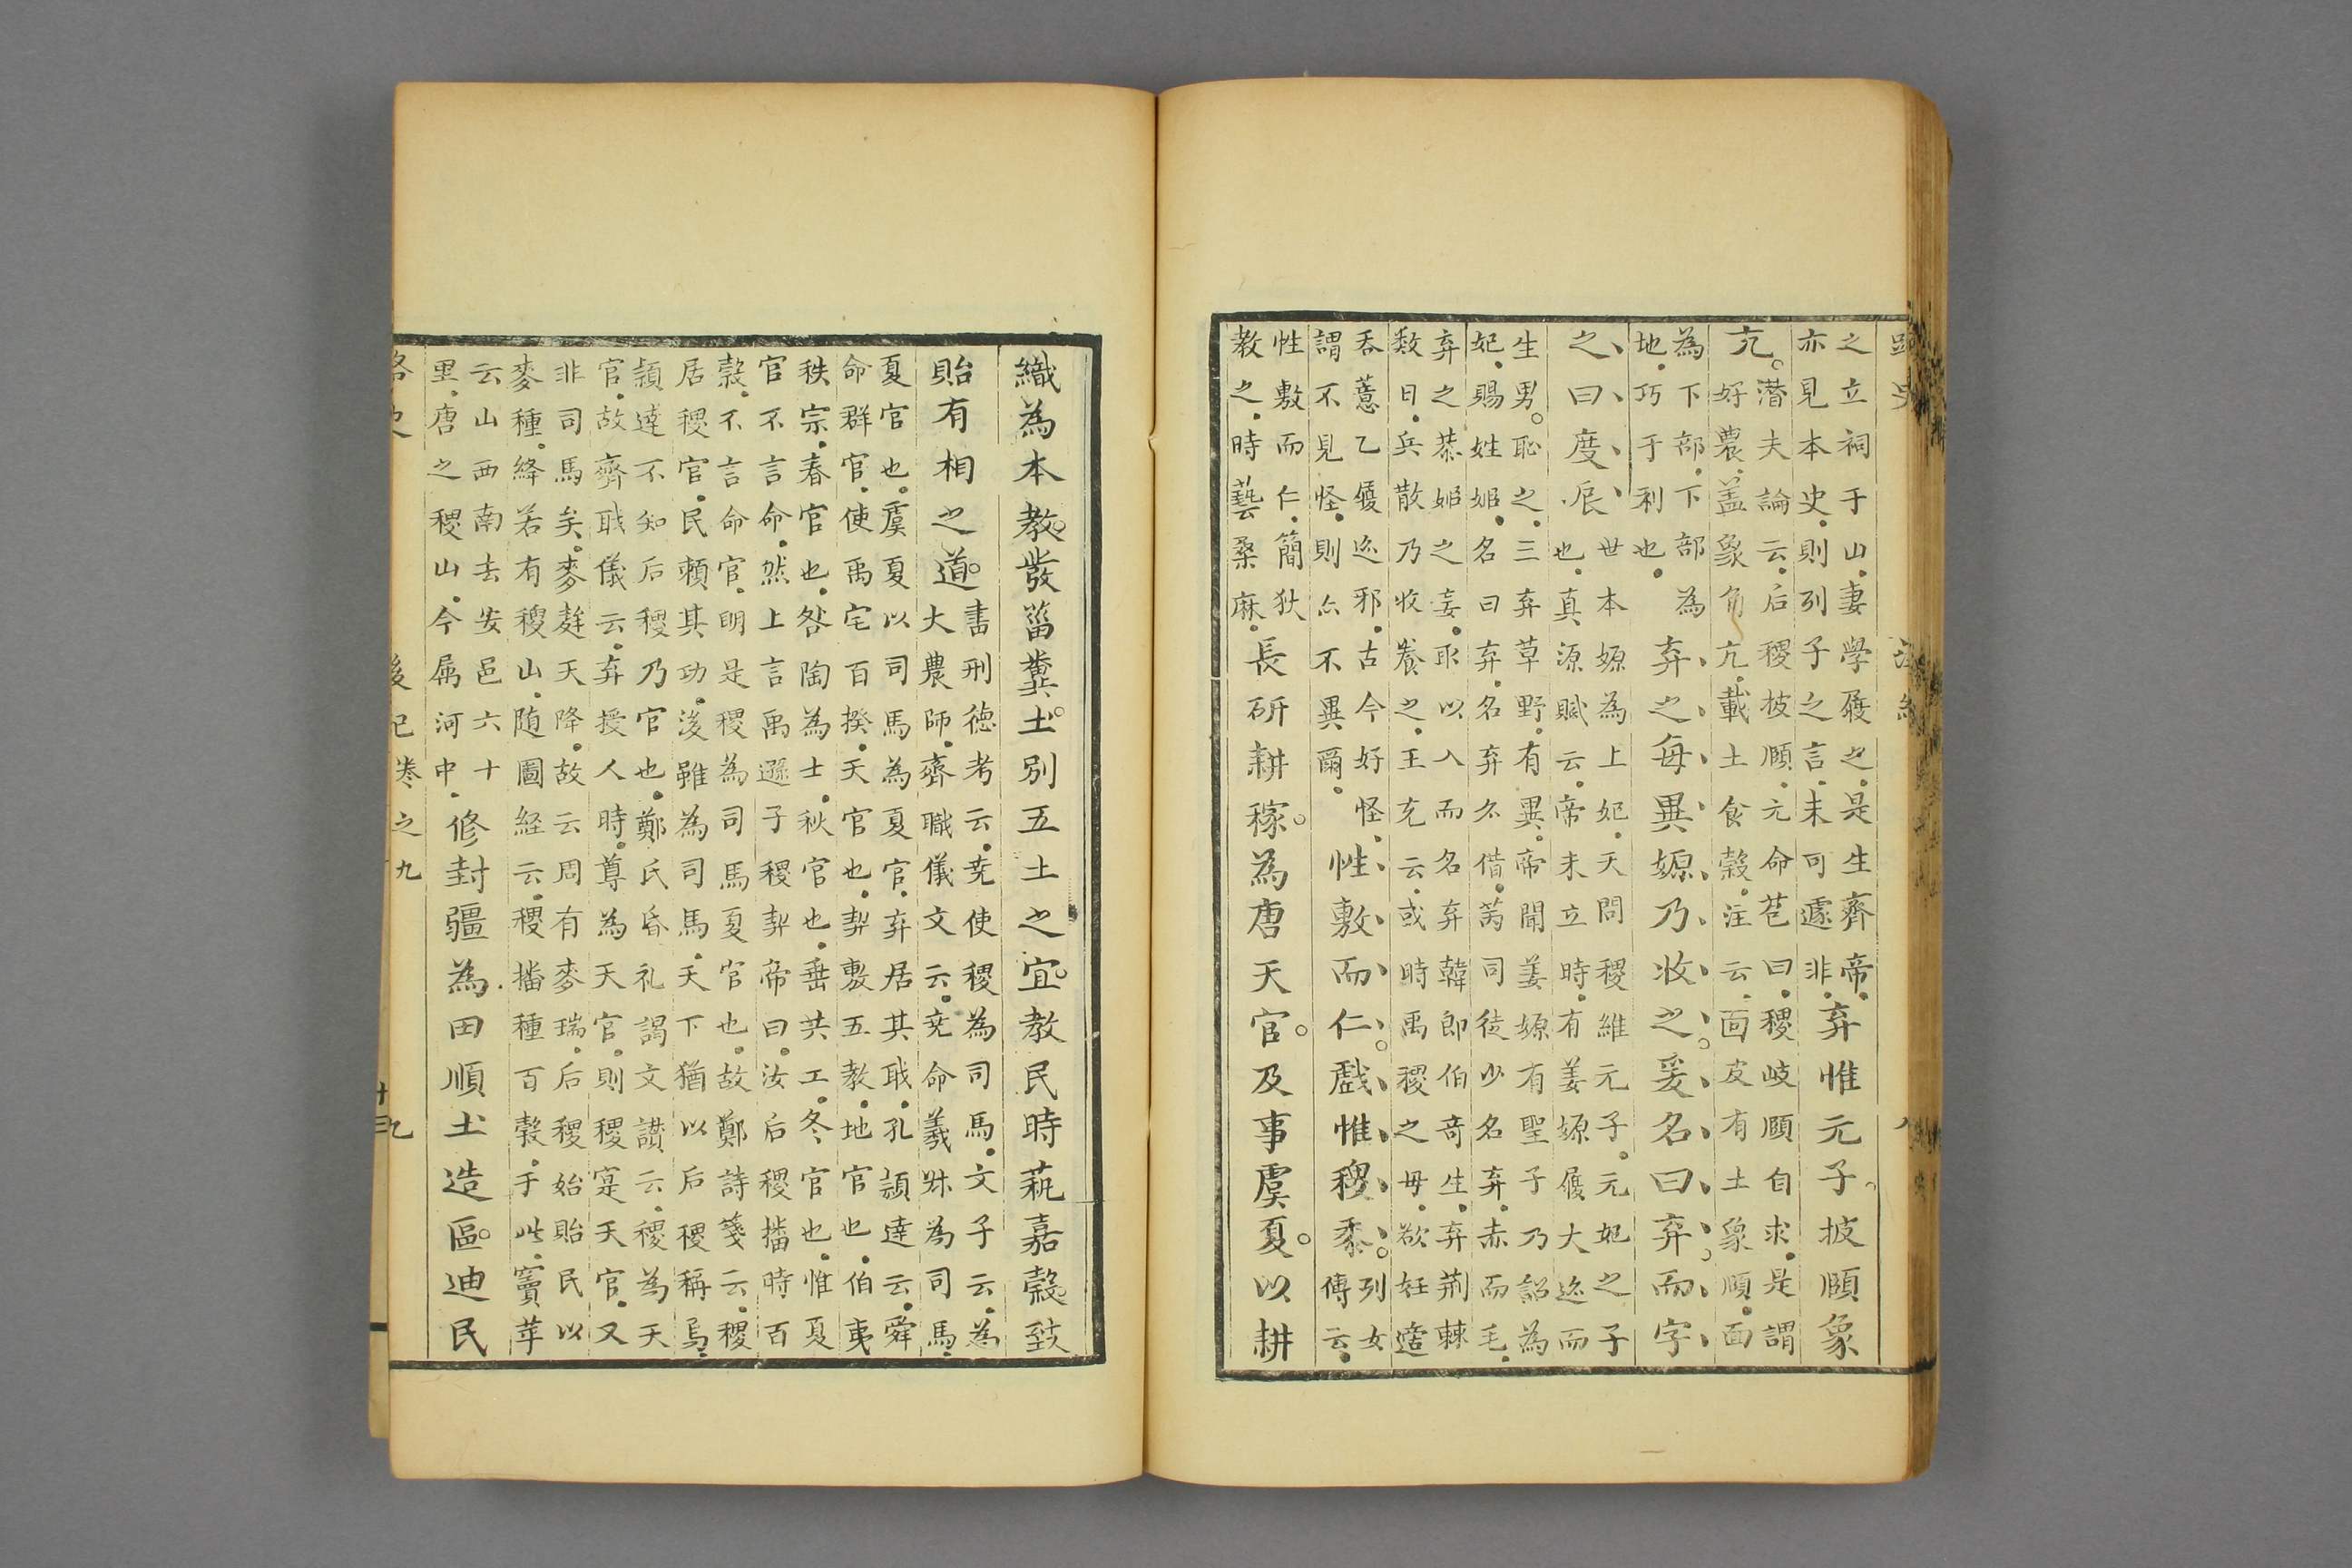 之立祠于山妻學履之是生齊帝
亦見本史則列子之言未可遽非
弃惟元子披頤象
亢
潛夫論云后稷披頤元命苞曰稷岐頤自求是謂
好農蓋象角亢載土食穀注云面皮有土象順面
為下部下部為
地巧于利也
弃之每異嫄乃收之爰名曰弃而字
之曰度辰
世本嫄為上妃天問稷維元子元妃之子
也真源賦云帝未立時有姜嫄履大迹而
生男恥之三弃草野有異帝聞姜嫄有聖子乃詔為
妃賜姓姬名曰弃名弃名弃久偕苪司徒少名弃赤而毛
弃之恭姬之妾取以入而名弃韓郎伯奇生弃荆棘
数日兵散乃收養之王充云或時禹稷之母欲妊適
吞薏乙履迹邪古今好怪
謂不見怪則亦不異爾
性敷而仁戲惟穋黍
列女
傳云
性敷而仁簡狄
教之時藝桑麻
長研耕稼為唐天官及事虞夏以耕
織為本教發菑糞土別五土之宜教民時蓺嘉穀鼓
貽有相之道
書刑德考云尭使稷為司馬文子云為
大農師齊職儀文云尭命羲姒為司馬
夏官也虞夏以司馬為夏官弃居其職孔頴達云舜
命群官使禹宅百揆天官也契敷五教地官也伯夷
秩宗春官也咎陶為士秋官也垂共工冬官也惟夏
官不言命然上言禹遜于稷契帝曰汝后稷播時百
穀不言命官明是稷為司馬夏官也故鄭詩箋云稷
居稷官民頼其功後雖為司馬天下猶以后稷稱焉
頴達不知后稷乃官也鄭氏昏礼謁文讃云稷為天
官故齊職儀云弃授人時尊為天官則稷寔天官又
非司馬矣麥麰天降故云周有麥瑞后稷始貽民以
麥種絳若有稷山随圖経云稷播種百穀于此竇苹
云山西南去安邑六十
里唐之稷山今屬河中
修封疆為田順土造區迪民
路史
後紀卷之九
九